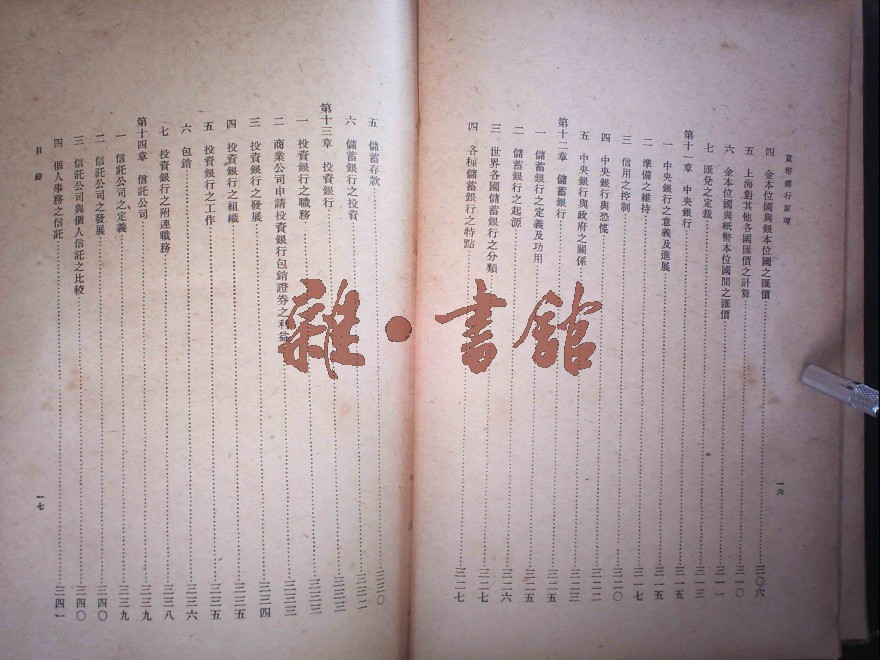 貨幣銀行原理
一六
四 金本位國與銀本位國之匯價 三〇六
五 上海對其他各國匯價之計算 三一〇
六 金本位國與紙幣本位國間之匯價 三一一
七 匯兌之定裁 三一三
第十一章 中央銀行 三一五
一 中央銀行之意義及進展 三一五
二 準備之維持 三一七
三 信用之控制 三二〇
四 中央銀行與恐慌 三二二
五 中央銀行與政府之關係 三二三
第十二章 儲蓄銀行 三二五
一 儲蓄銀行之定義及功用 三二五
二 儲蓄銀行之起源 三二六
三 世界各國儲蓄銀行之分類 三二七
四 各種儲蓄銀行之特點 三二七
五 儲蓄存款 三三〇
六 儲蓄銀行之投資 三三二
第十三章 投資銀行 三三三
一 投資銀行之職務 三三三
二 商業公司申請投資銀行包銷證券之利益 三三三
三 投資銀行之發展 三三四
四 投資銀行之組織 三三五
五 投資銀行之工作 三三五
六 包銷 三三六
七 投資銀行之附連職務 三三八
第十四章 信託公司 三三九
一 信託公司之定義 三三九
二 信託公司之發展 三四〇
三 信託公司與個人信託之比較 三四〇
四 個人事務之信託 三四一
目錄
一七
雜·書館